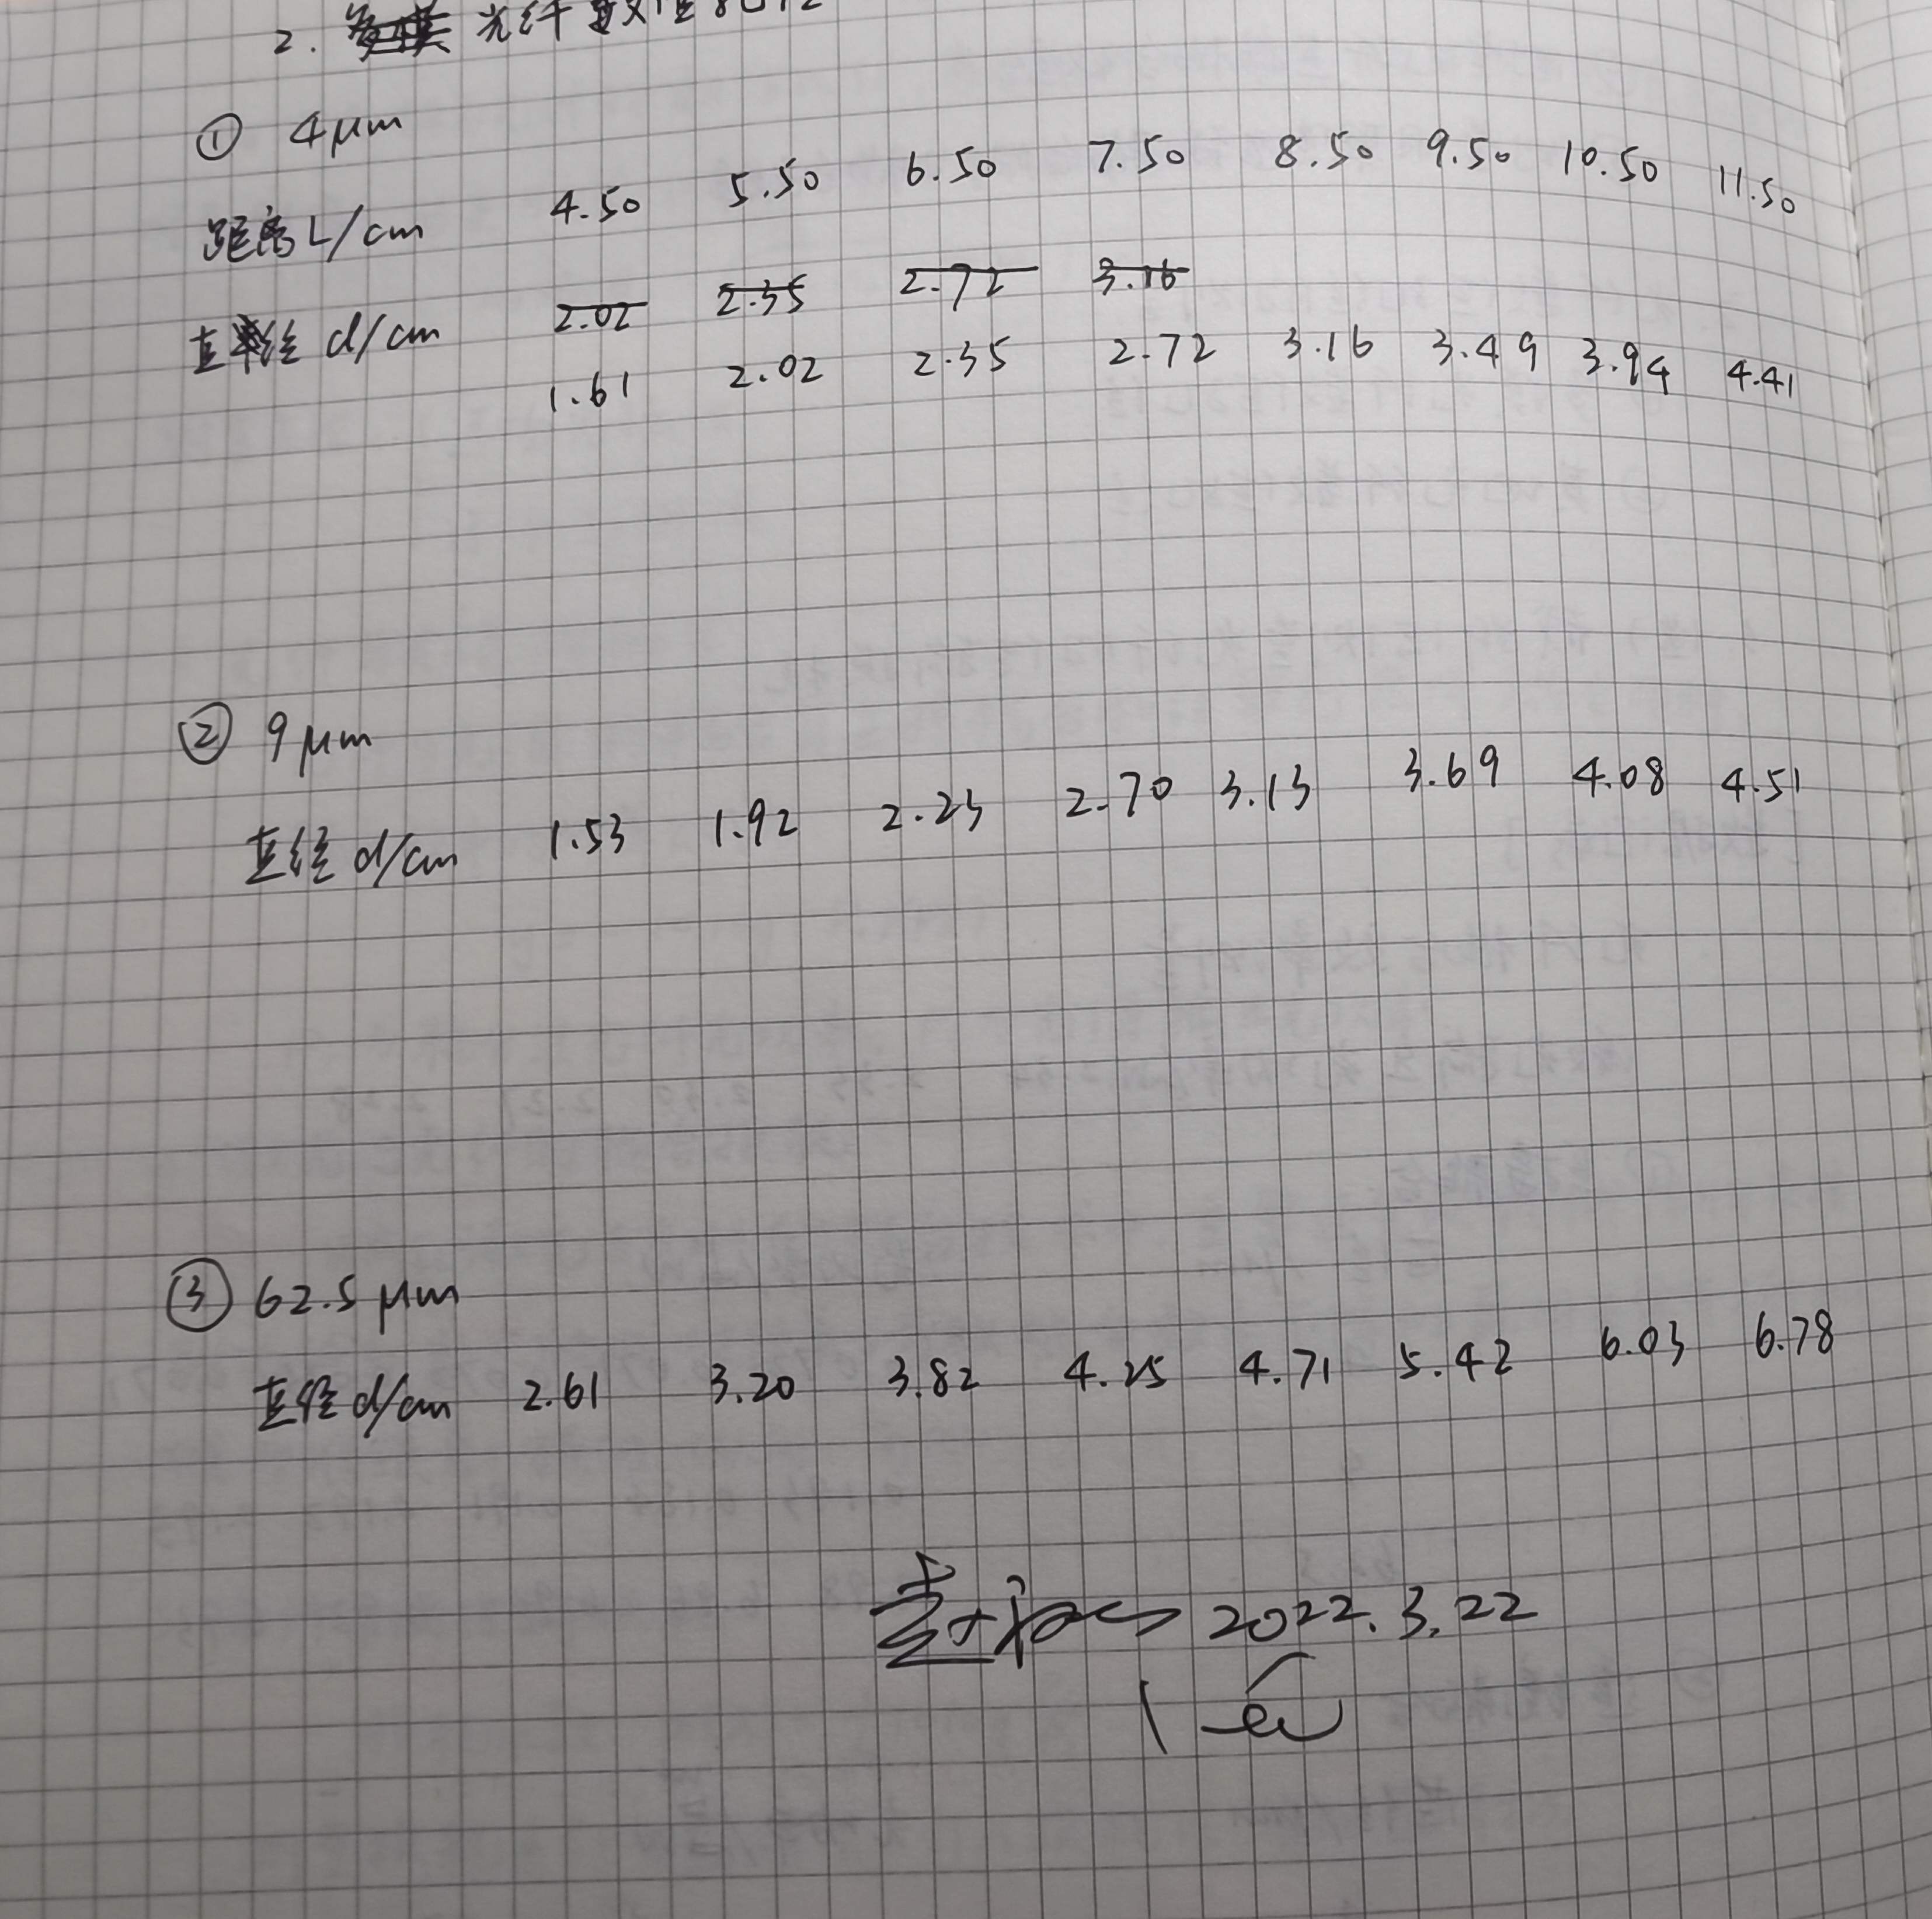 2. 光纤数值
① 4 μm
距离 L/cm 4.50 5.50 6.50 7.50 8.50 9.50 10.50 11.50
2.02 2.35 2.72 3.16
直径 d/cm 1.61 2.02 2.35 2.72 3.16 3.49 3.94 4.41
② 9 μm
直径 d/cm 1.53 1.92 2.23 2.70 3.13 3.69 4.08 4.51
③ 62.5 μm
直径 d/cm 2.61 3.20 3.82 4.25 4.71 5.42 6.03 6.78
2022.3.22